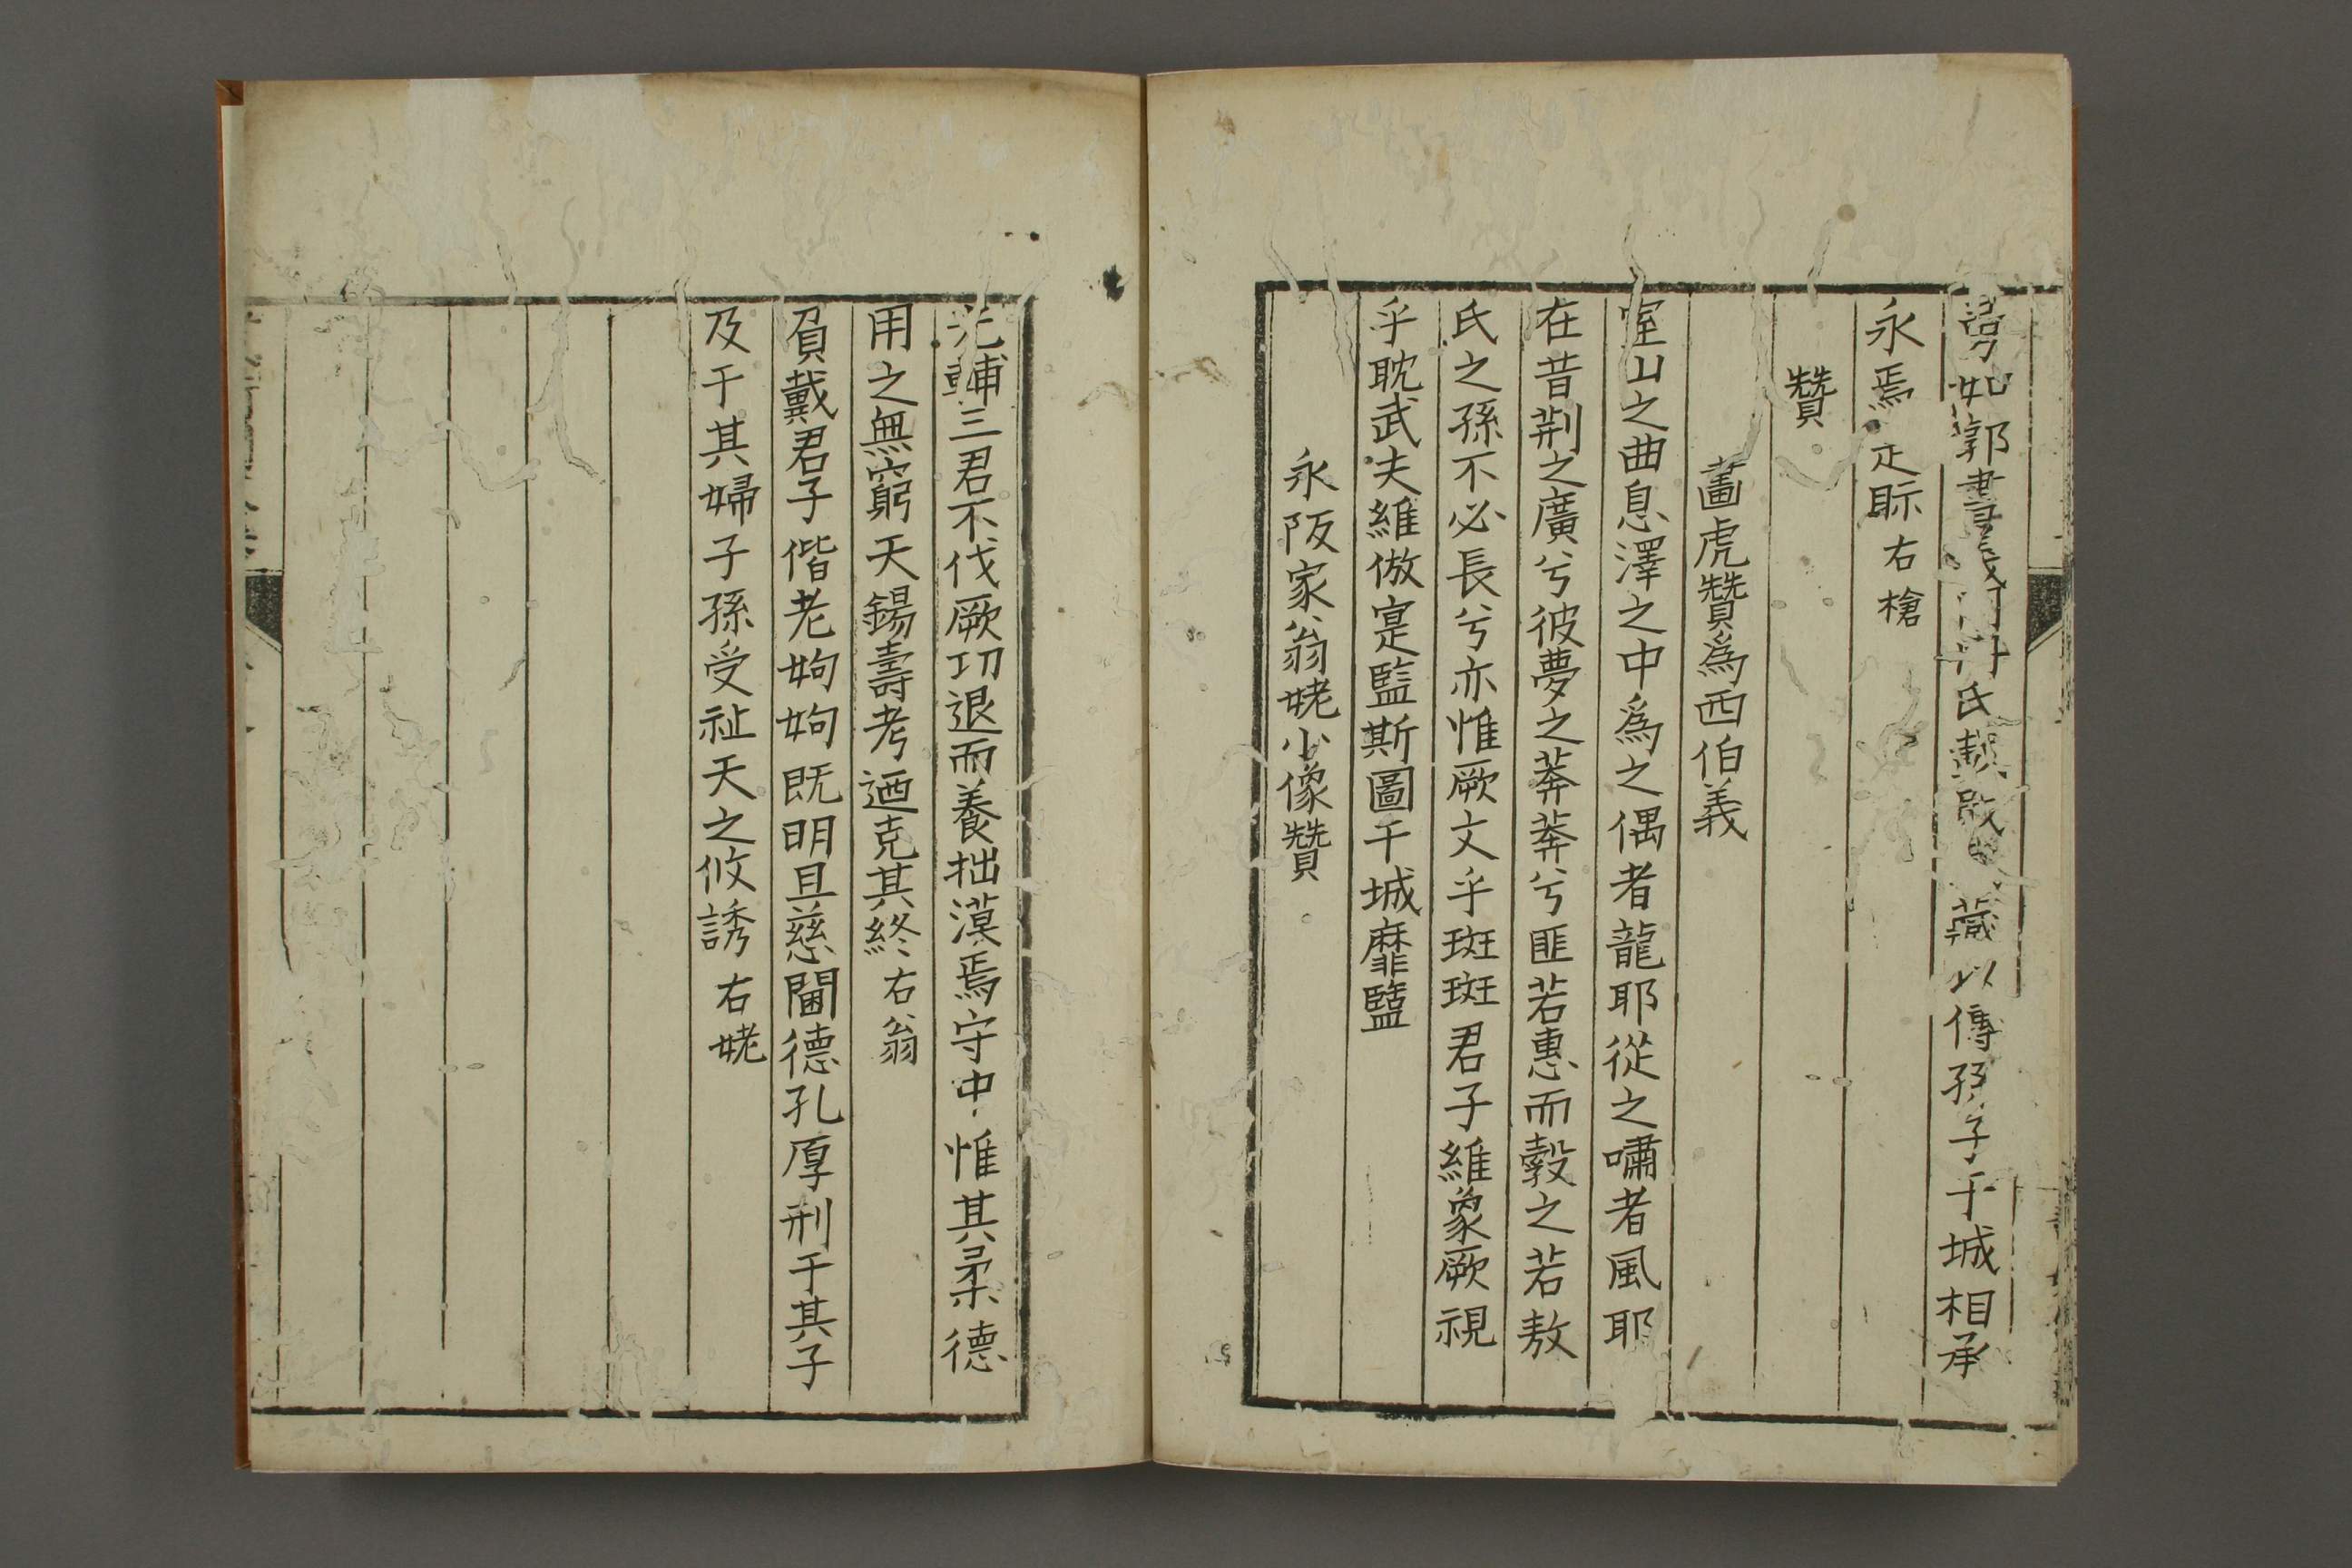 如郭書義
氏
藏以傳孫子干城相承
永焉疋眎右槍
贊
畵虎贊爲西伯義
室山之曲息澤之中爲之偶者龍耶從之嘯者風耶
在昔荆之廣兮彼夢之莽莽兮匪若惠而穀之若敖
氏之孫不必長兮亦惟厥文乎斑斑君子維象厥視
乎耽武夫維倣寔監斯圖干城靡盬
永阪家翁姥小像贊
光輔三君不伐厥功退而養拙漠焉守中惟其柔德
用之無窮天錫壽考迺克其終右翁
負戴君子偕老姁姁既明且慈閫德孔厚刑于其子
及于其婦子孫受祉天之攸誘右姥